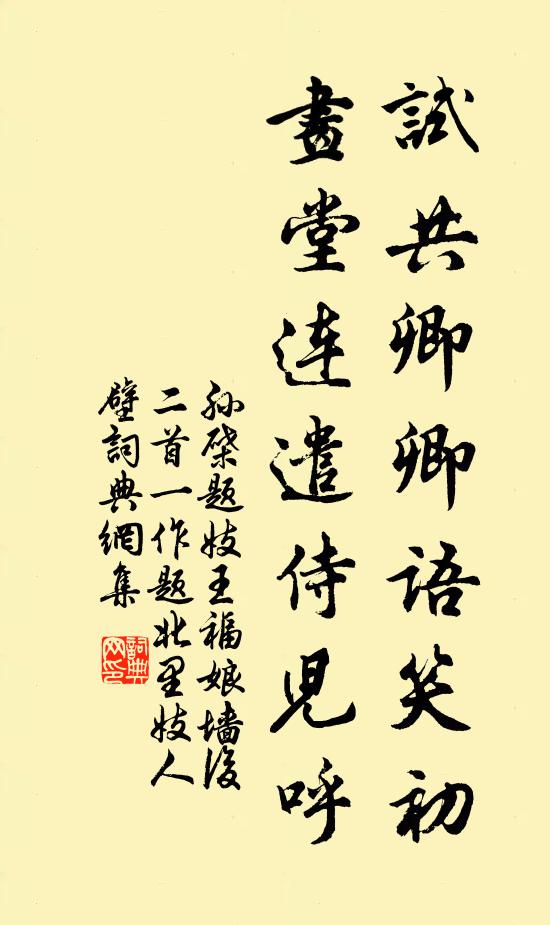 試共卿卿語笑初
畫堂連遣侍児呼
孫棨題妓王福娘墻後
二首一作題北里妓人
壁詞典網集
詞典
网印